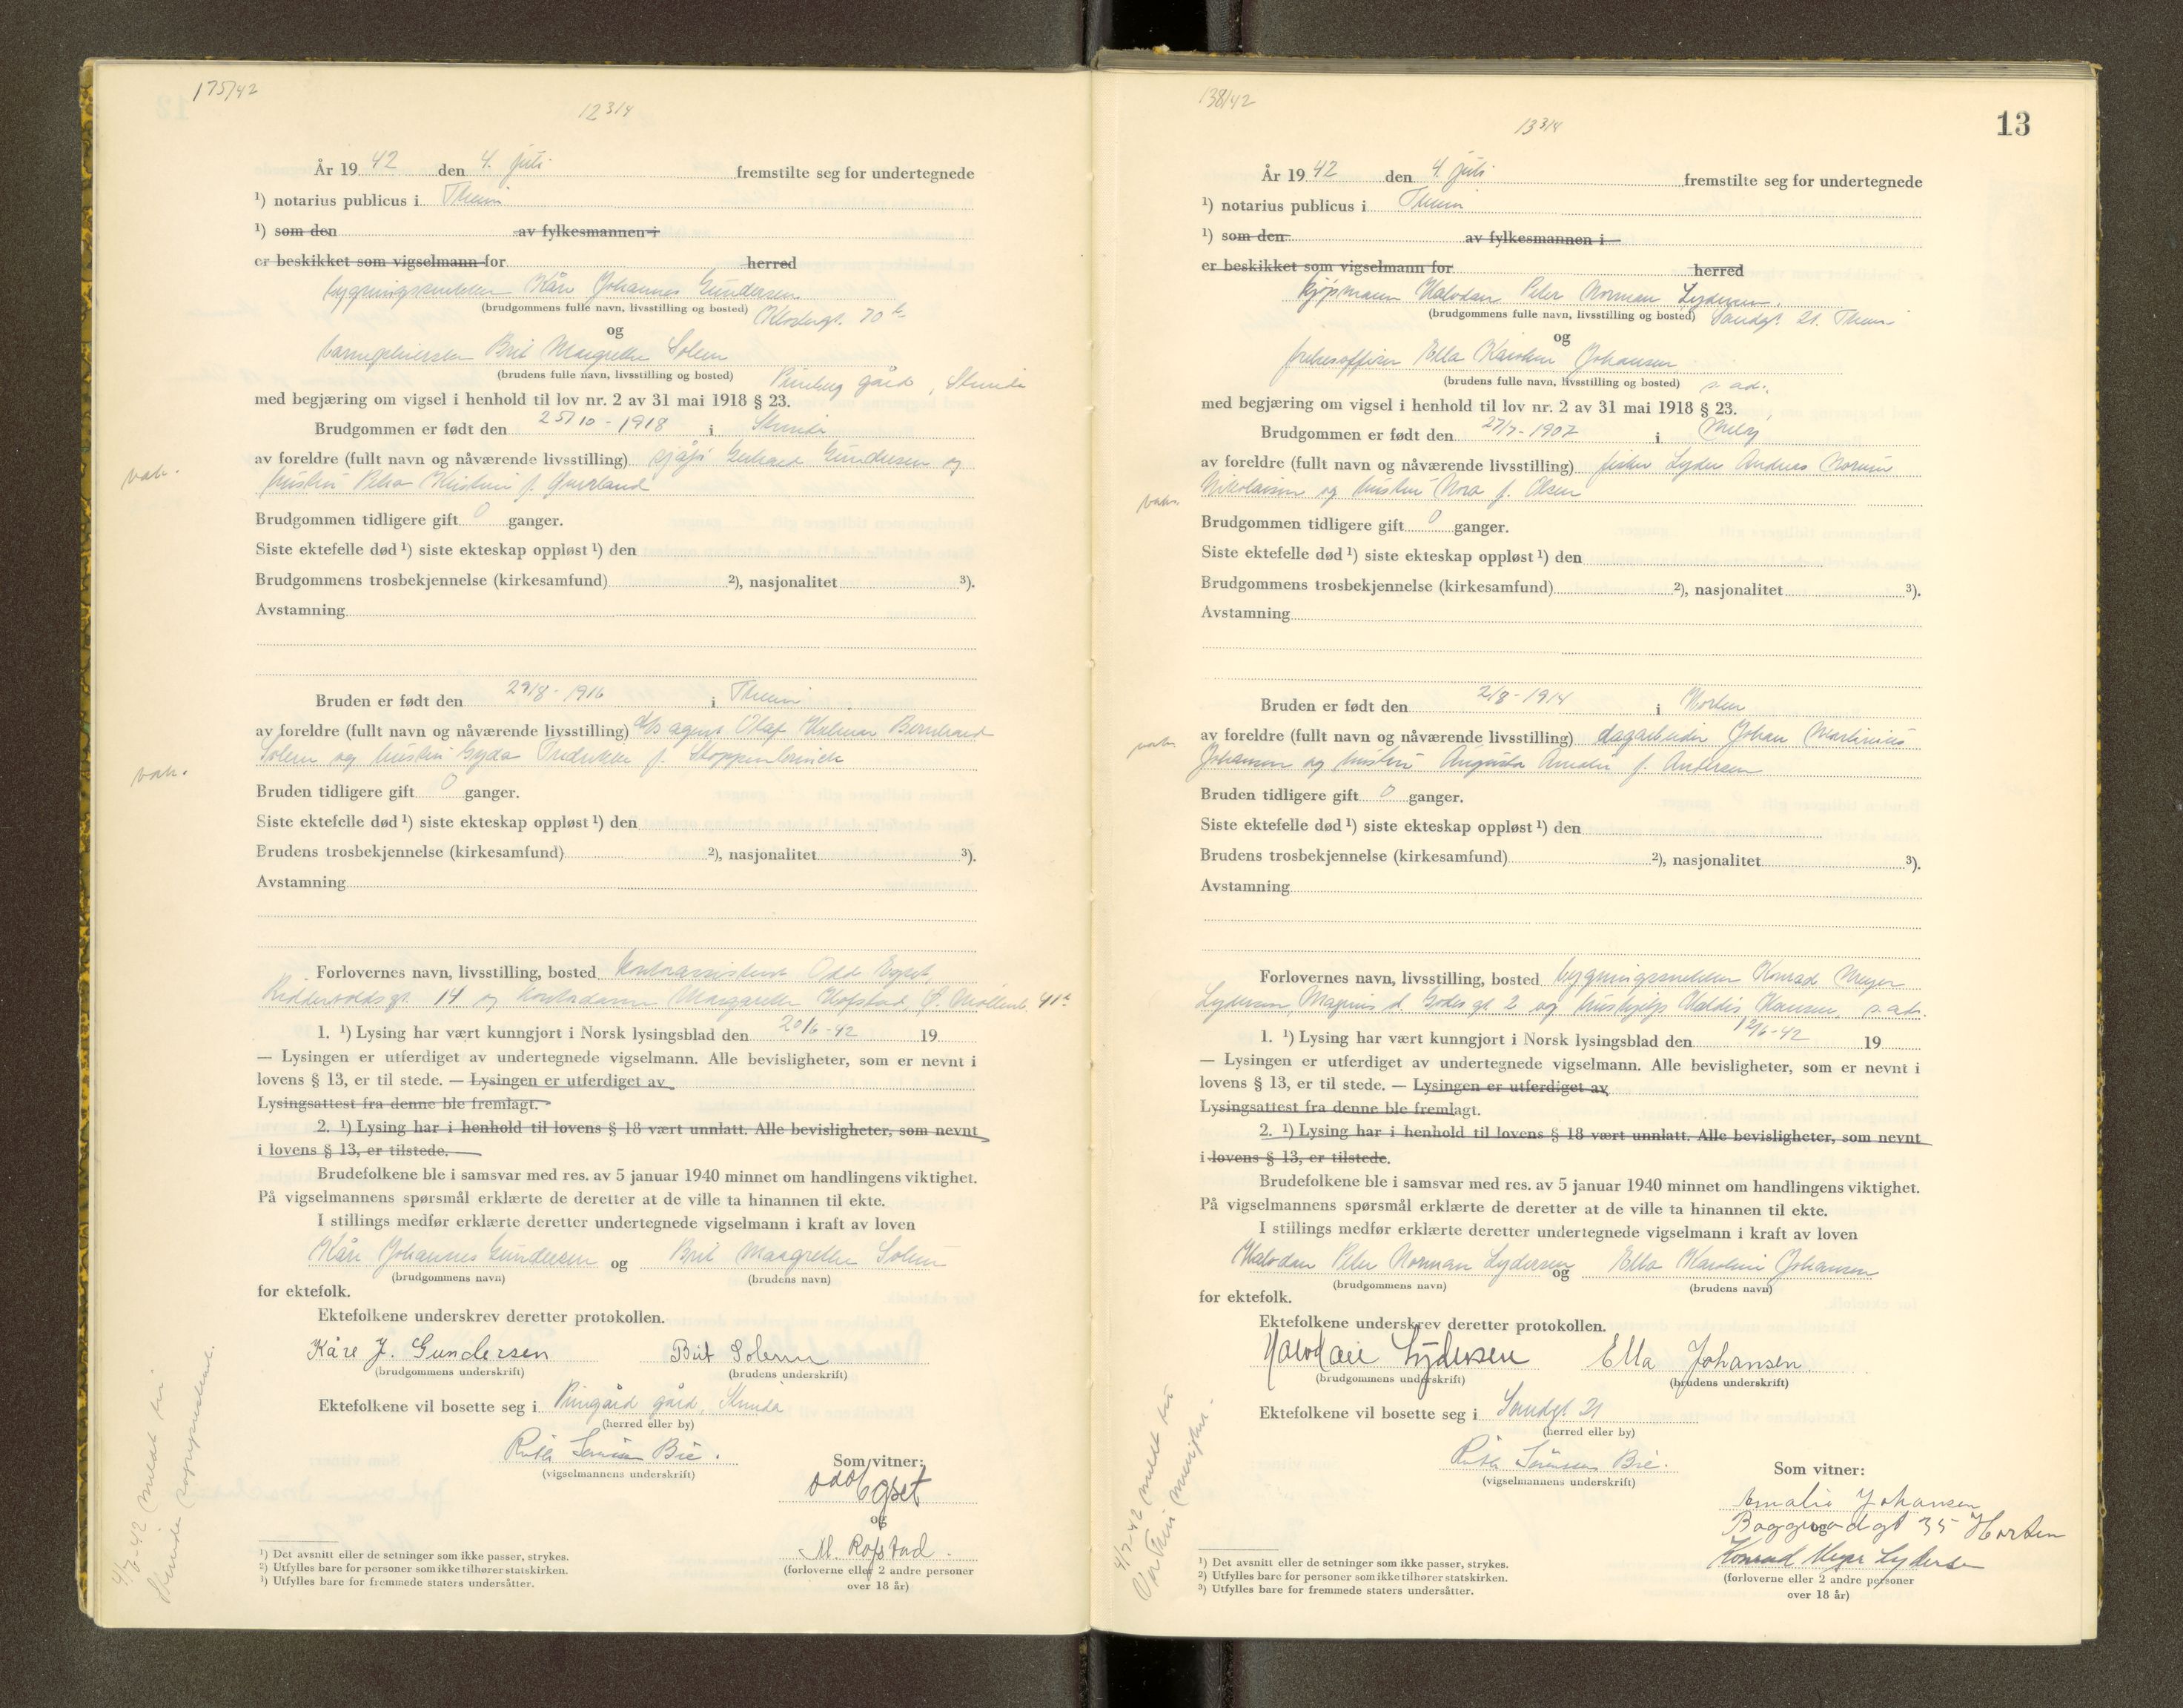 175/42
12 3/4
År 19 42 den 4. juli fremstilte seg for undertegnede
¹) notarius publicus i Thein
¹) som den av fylkesmannen i
er beskikket som vigselmann for herred
bygningssnekker Kåre Johannes Gundersen
(brudgommens fulle navn, livsstilling og bosted) Klostergt. 70
og
barnepleierske Brit Margrethe Solem
(brudens fulle navn, livsstilling og bosted) gård, Strinda
med begjæring om vigsel i henhold til lov nr. 2 av 31 mai 1918 § 23.
Brudgommen er født den 25/10 - 1918 i Strinda
av foreldre (fullt navn og nåværende livsstilling) sjåfør Gerhard Gundersen og
hustru Petra Kristine f.
vak.
Brudgommen tidligere gift 0 ganger.
Siste ektefelle død ¹) siste ekteskap oppløst ¹) den
Brudgommens trosbekjennelse (kirkesamfund) ²), nasjonalitet ³).
Avstamning
Bruden er født den 29/8 - 1916 i Thein
av foreldre (fullt navn og nåværende livsstilling) agent Olaf Halmar Bernhard
Solem og hustru Gyda Fredrikke f.
vak.
Bruden tidligere gift 0 ganger.
Siste ektefelle død ¹) siste ekteskap oppløst ¹) den
Brudens trosbekjennelse (kirkesamfund) ²), nasjonalitet ³).
Avstamning
Forlovernes navn, livsstilling, bosted kontorassistent Odd Egset
Riddervoldsgt. 14 og kontordame Margarethe Hofstad, Ø. Møllenb. 41
1. ¹) Lysing har vært kunngjort i Norsk lysingsblad den 20/6 - 42 19
— Lysingen er utferdiget av undertegnede vigselmann. Alle bevisligheter, som er nevnt i
lovens § 13, er til stede. — Lysingen er utferdiget av
Lysingsattest fra denne ble fremlagt.
2. ¹) Lysing har i henhold til lovens § 18 vært unnlatt. Alle bevisligheter, som nevnt
i lovens § 13, er tilstede.
Brudefolkene ble i samsvar med res. av 5 januar 1940 minnet om handlingens viktighet.
På vigselmannens spørsmål erklærte de deretter at de ville ta hinannen til ekte.
I stillings medfør erklærte deretter undertegnede vigselmann i kraft av loven
Kåre Johannes Gundersen og Brit Margrethe Solem
(brudgommens navn) (brudens navn)
for ektefolk.
Ektefolkene underskrev deretter protokollen.
Kåre J. Gundersen Brit Solem
(brudgommens underskrift) (brudens underskrift)
Ektefolkene vil bosette seg i gård, Strinda
(herred eller by)
Ruth Sørenssen Bie.
(vigselmannens underskrift)
Som vitner:
Odd Egset
og
M. Hofstad.
(forloverne eller 2 andre personer
over 18 år)
¹) Det avsnitt eller de setninger som ikke passer, strykes.
²) Utfylles bare for personer som ikke tilhører statskirken.
³) Utfylles bare for fremmede staters undersåtter.
4/7-42 meldt til
Strinda sogneprestemb.
138/42
13 3/4
13
År 19 42 den 4. juli fremstilte seg for undertegnede
¹) notarius publicus i Thein
¹) som den av fylkesmannen i
er beskikket som vigselmann for herred
kjøpmann Halvdan Peter Norman Lydersen.
(brudgommens fulle navn, livsstilling og bosted) Sandgt. 21. Thein
og
frelsesoffiser Ella Karoline Johansen
(brudens fulle navn, livsstilling og bosted) s. ad.
med begjæring om vigsel i henhold til lov nr. 2 av 31 mai 1918 § 23.
Brudgommen er født den 27/7 - 1907 i Meløy
av foreldre (fullt navn og nåværende livsstilling) fisker Lyder Andreas Norum
Nikolaisen og hustru Nora f. Olsen
vak.
Brudgommen tidligere gift 0 ganger.
Siste ektefelle død ¹) siste ekteskap oppløst ¹) den
Brudgommens trosbekjennelse (kirkesamfund) ²), nasjonalitet ³).
Avstamning
Bruden er født den 2/8 - 1914 i Horten
av foreldre (fullt navn og nåværende livsstilling) dagarbeider Johan Martinius
Johansen og hustru Augusta Amalie f. Andersen
vak.
Bruden tidligere gift 0 ganger.
Siste ektefelle død ¹) siste ekteskap oppløst ¹) den
Brudens trosbekjennelse (kirkesamfund) ²), nasjonalitet ³).
Avstamning
Forlovernes navn, livsstilling, bosted bygningssnekker Konrad Meyer
Lydersen, Magnus d. Godes gt. 2 og Hansen, s. ad.
1. ¹) Lysing har vært kunngjort i Norsk lysingsblad den 12/6 - 42 19
— Lysingen er utferdiget av undertegnede vigselmann. Alle bevisligheter, som er nevnt i
lovens § 13, er til stede. — Lysingen er utferdiget av
Lysingsattest fra denne ble fremlagt.
2. ¹) Lysing har i henhold til lovens § 18 vært unnlatt. Alle bevisligheter, som nevnt
i lovens § 13, er tilstede.
Brudefolkene ble i samsvar med res. av 5 januar 1940 minnet om handlingens viktighet.
På vigselmannens spørsmål erklærte de deretter at de ville ta hinannen til ekte.
I stillings medfør erklærte deretter undertegnede vigselmann i kraft av loven
Halvdan Peter Norman Lydersen og Ella Karoline Johansen
(brudgommens navn) (brudens navn)
for ektefolk.
Ektefolkene underskrev deretter protokollen.
Halvdan Lydersen Ella Johansen
(brudgommens underskrift) (brudens underskrift)
Ektefolkene vil bosette seg i Sandgt 21
(herred eller by)
Ruth Sørenssen Bie.
(vigselmannens underskrift)
Som vitner:
Amalie Johansen
Baggerødgt 35 Horten
og
Konrad Meyer Lydersen
(forloverne eller 2 andre personer
over 18 år)
¹) Det avsnitt eller de setninger som ikke passer, strykes.
²) Utfylles bare for personer som ikke tilhører statskirken.
³) Utfylles bare for fremmede staters undersåtter.
4/7-42 meldt til
Vår Frue menighet.